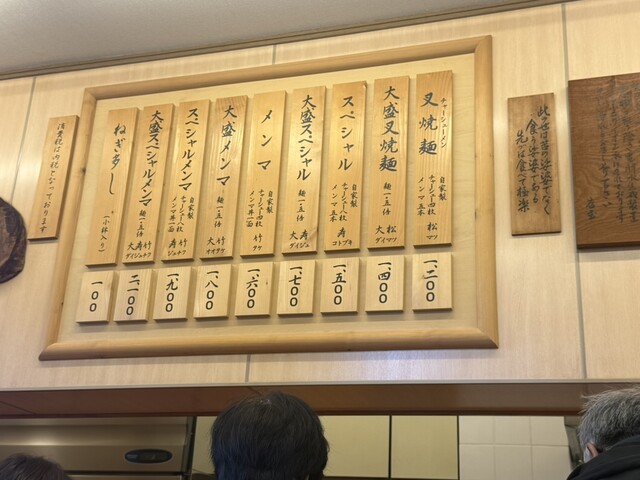 叉焼麺
チャーシューメン
自家製
チャーシュー四枚
メンマ 五本
松
マツ
一、二〇〇
大盛叉焼麺
麺一・五倍
大松
ダイマツ
一、四〇〇
スペシャル
自家製
チャーシュー八枚
メンマ 五本
寿
コトブキ
一、五〇〇
大盛スペシャル
麺一・五倍
大寿
ダイジュ
一、七〇〇
メンマ
自家製
チャーシュー四枚
メンマ丼一面
竹
タケ
一、六〇〇
大盛メンマ
麺一・五倍
大竹
オオタケ
一、八〇〇
スペシャルメンマ
自家製
チャーシュー八枚
メンマ丼一面
寿竹
ジュチク
一、九〇〇
大盛スペシャルメンマ
麺一・五倍
大寿竹
ダイジュチク
二、一〇〇
ねぎ多し
(小鉢入り)
一〇〇
消費税は内税となっております
食の
先ず食べて極楽
店主